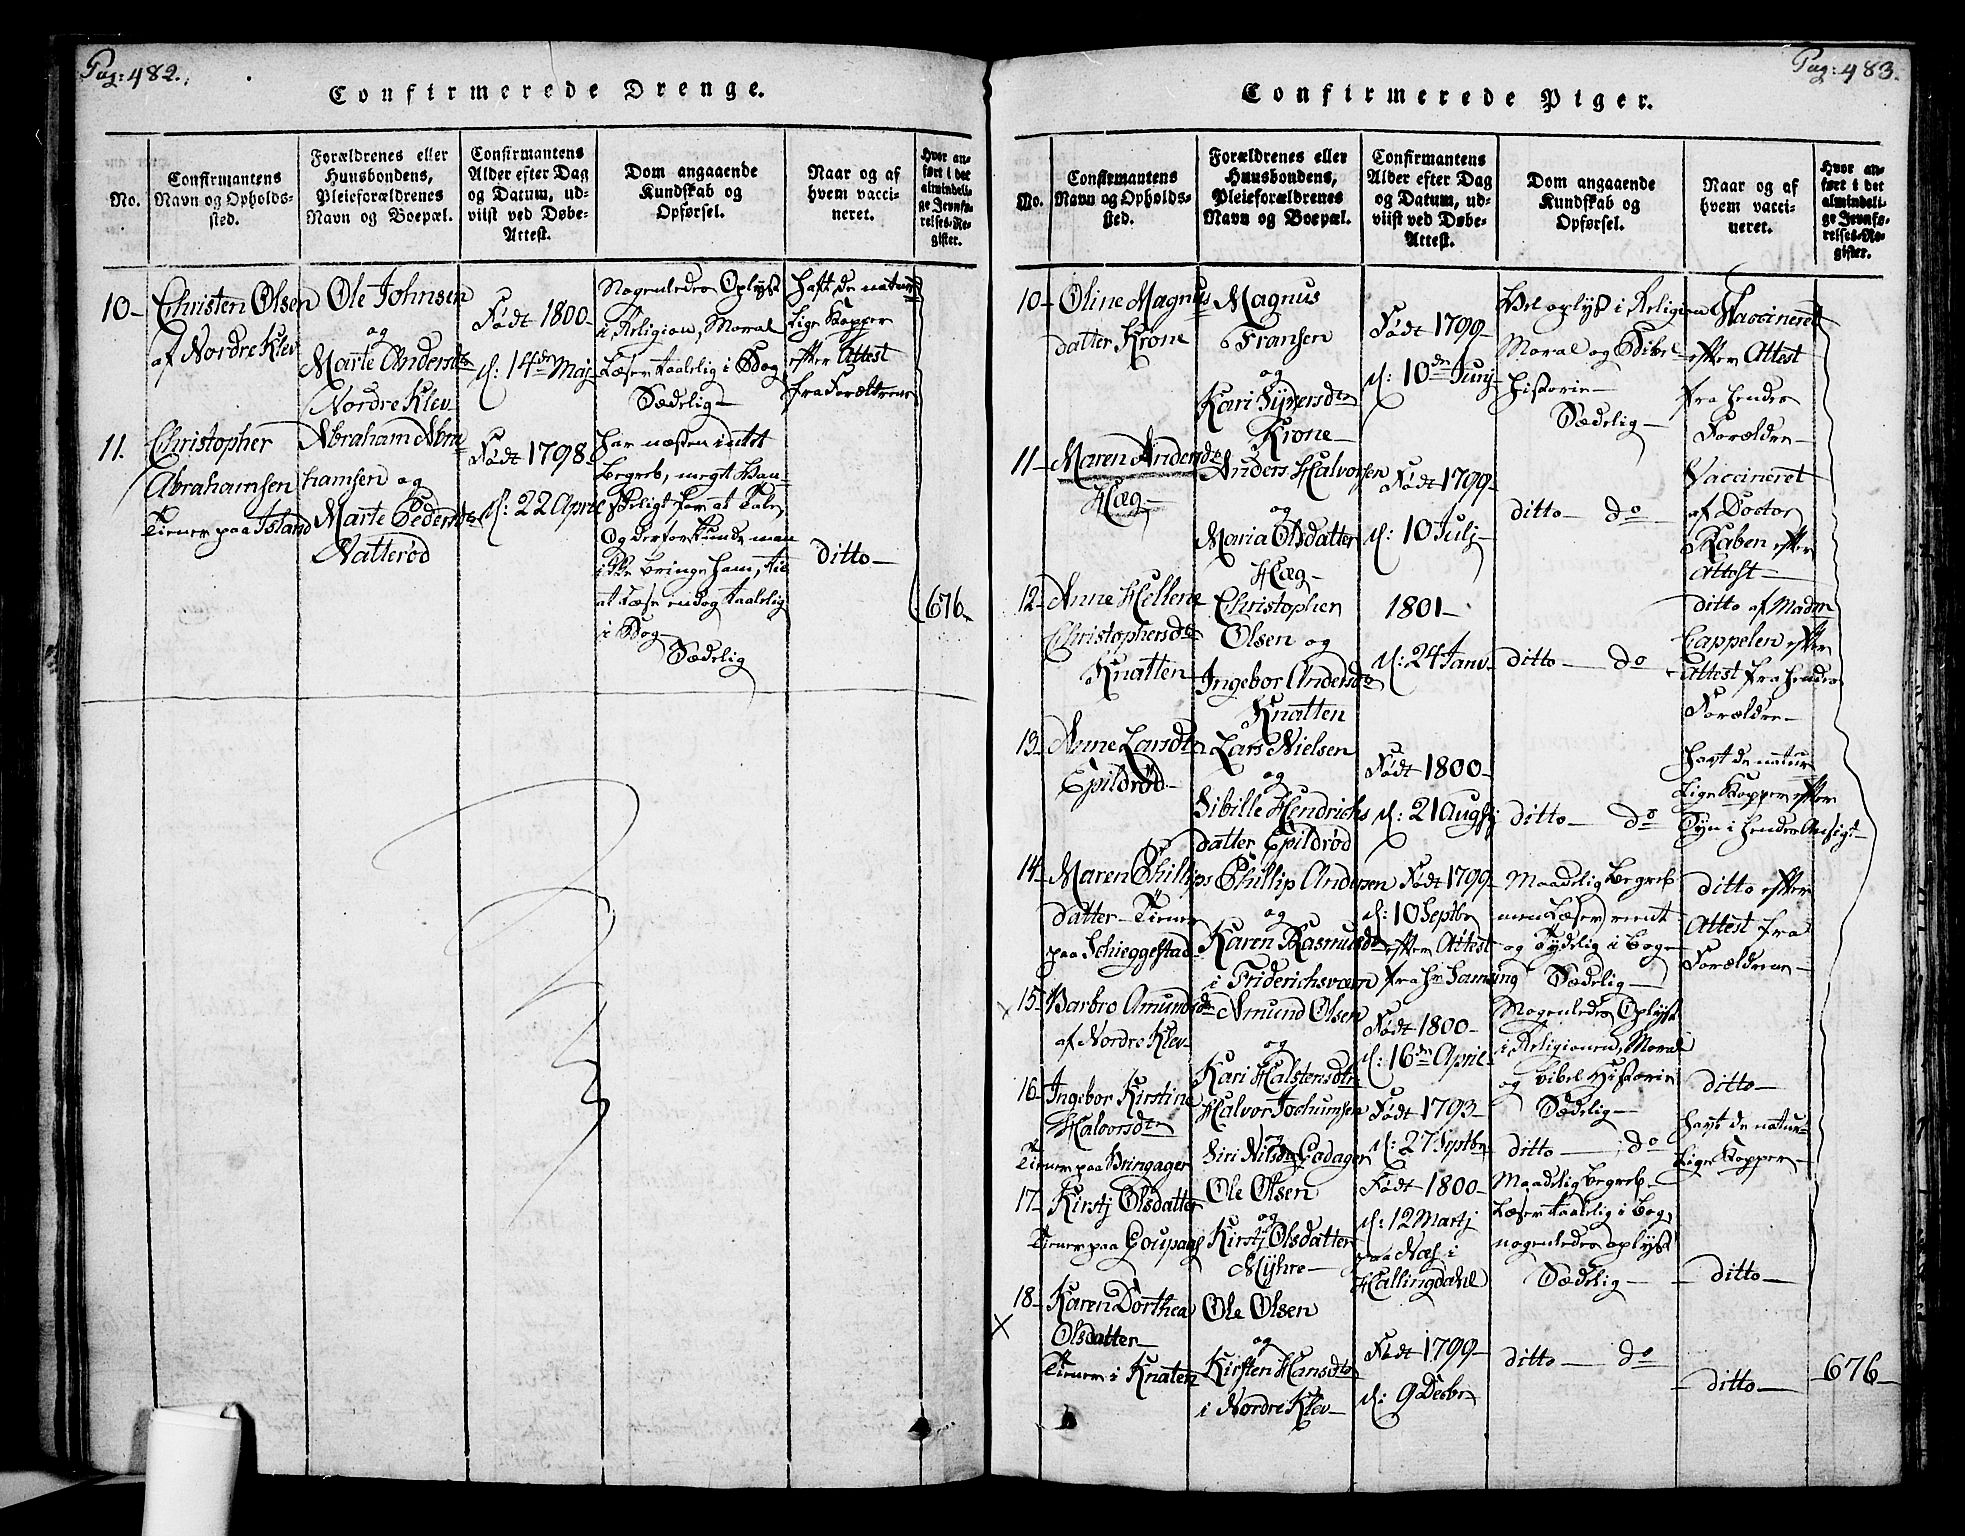 Pag: 482.
Confirmerede Drenge.
No.
Confirmantens
Navn og Opholds-
sted.
Forældrenes eller
Huusbondens,
Pleieforældrenes
Navn og Boepæl.
Confirmantens
Alder efter Dag
og Datum, ud-
viist ved Døbe-
Attest.
Dom angaaende
Kundskab og
Opførsel.
Naar og af
hvem vacci-
neret.
Hvor an-
ført i det
almindeli-
ge Jevnfø-
relses-Re-
gister.
10-
Christen Olsen
af Nordre Klev
Ole Johnsen
og
Marte Andersdtr
Nordre Klev
Født 1800-
d: 14de Maj
Nogenledes Oplyst
i Religion, Moral
Læser taalelig i Bog
Sædelig-
haft de natur
lige Kopper
efter Attest
fra Forældrene
11.
Christopher
Abrahamsen
Tiener paa Island
Abraham Abra
hamsen og
Marte Pedersdtr
Natterød
Født 1798-
d: 22 April
har næsten intet
Begreb, megt Van-
skeligt for at Tale,
og derfor kunde man
ikke bringe ham, til
at Læse endog taalelig
i Bog
Sædelig
ditto-
676-
Pag: 483.
Confirmerede Piger.
No.
Confirmantens
Navn og Opholds-
sted.
Forældrenes eller
Huusbondens,
Pleieforældrenes
Navn og Boepæl.
Confirmantens
Alder efter Dag
og Datum, ud-
viist ved Døbe-
Attest.
Dom angaaende
Kundskab og
Opførsel.
Naar og af
hvem vacci-
neret.
Hvor an-
ført i det
almindeli-
ge Jevnfø-
relses-Re-
gister.
10-
Oline Magnus
datter Krone
Magnus
Fransen
og
Kari Syversdtr
Krone-
Født 1799-
d: 10de Junj-
Vel oplyst i Religion
Moral og Bibel
historie-
Sædelig-
Vaccineret
efter Attest
fra hendes
Forældre-
11-
Maren Andersdtr
Hæg-
Anders Halvorsen
og
Maria Olsdatter
Hæg-
Født 1799-
d: 10 Julj-
ditto- do-
Vaccineret
af Doctor
Raben efter
Attest-
12-
Anne Hellene
Christophersdtr
Knatten
Christopher
Olsen og
Ingebor Andersdtr
Knatten
1801-
d: 24 Janv-
ditto- do
ditto af Madm
Cappelen efter
Attest fra hendes
Forældre-
13-
Anne Larsdtr
Epildrød-
Lars Nielsen
og
Sibille Hendrichs
datter Epildrød
Født 1800-
d: 21 Augstj
ditto- do
havt de natur
lige Kopper efter
Syn i hendes Ansigt-
14-
Maren Phillips
datter- Tiener
paa Schieggestad
Phillip Andersen
og
Karen Rasmusdtr
i Friderichsværn
Født 1799-
d: 10 Septbr
efter Attest
fra Hr Samsing
Maadelig Begreb
men Læser reent
og Tydelig i Bog-
Sædelig-
ditto efter
Attest fra
Forældrene-
15-
Barbro Amundsdtr
af Nordre Klev-
Amund Olsen
og
Kari Halstensdtr
Født 1800-
d: 16de April
Nogenledes Oplyst
i Religionen, Moral
og bibel Historie
Sædelig-
ditto-
16-
Ingebor Kirstine
Halvorsdtr
Tiener paa Bringager
Halvor Jochumsen
Siri Nilsdtr Gadager
Født 1793-
d: 27 Septbr
ditto- do
havt de natur-
lige Kopper-
17-
Kirstj Olsdatter
Tiener paa
Ole Olsen
og
Kirstj Olsdatter
Myhre-
Født 1800-
d: 12 Martj
paa Næs i
Hallingdahl
Maadelig Begreb-
Læser taalelig i Bog,
nogenledes oplyst
Sædelig-
ditto-
18-
Karen Dorthea
Olsdatter-
Tiener i Knaten
Ole Olsen
og
Kirsten Hansdtr
i Nordre Klev-
Født 1799-
d: 9 Decbr
ditto- do
ditto-
676-